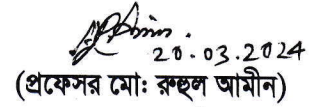 20.03.2024
(প্রফেসর মোঃ রুহুল আমীন)